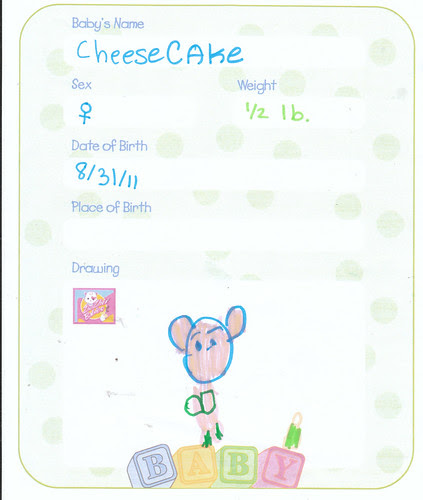 Baby's Name
CheeseCAKe
Sex Weight
♀ 1/2 lb.
Date of Birth
8/31/11
Place of Birth
Drawing
BABY